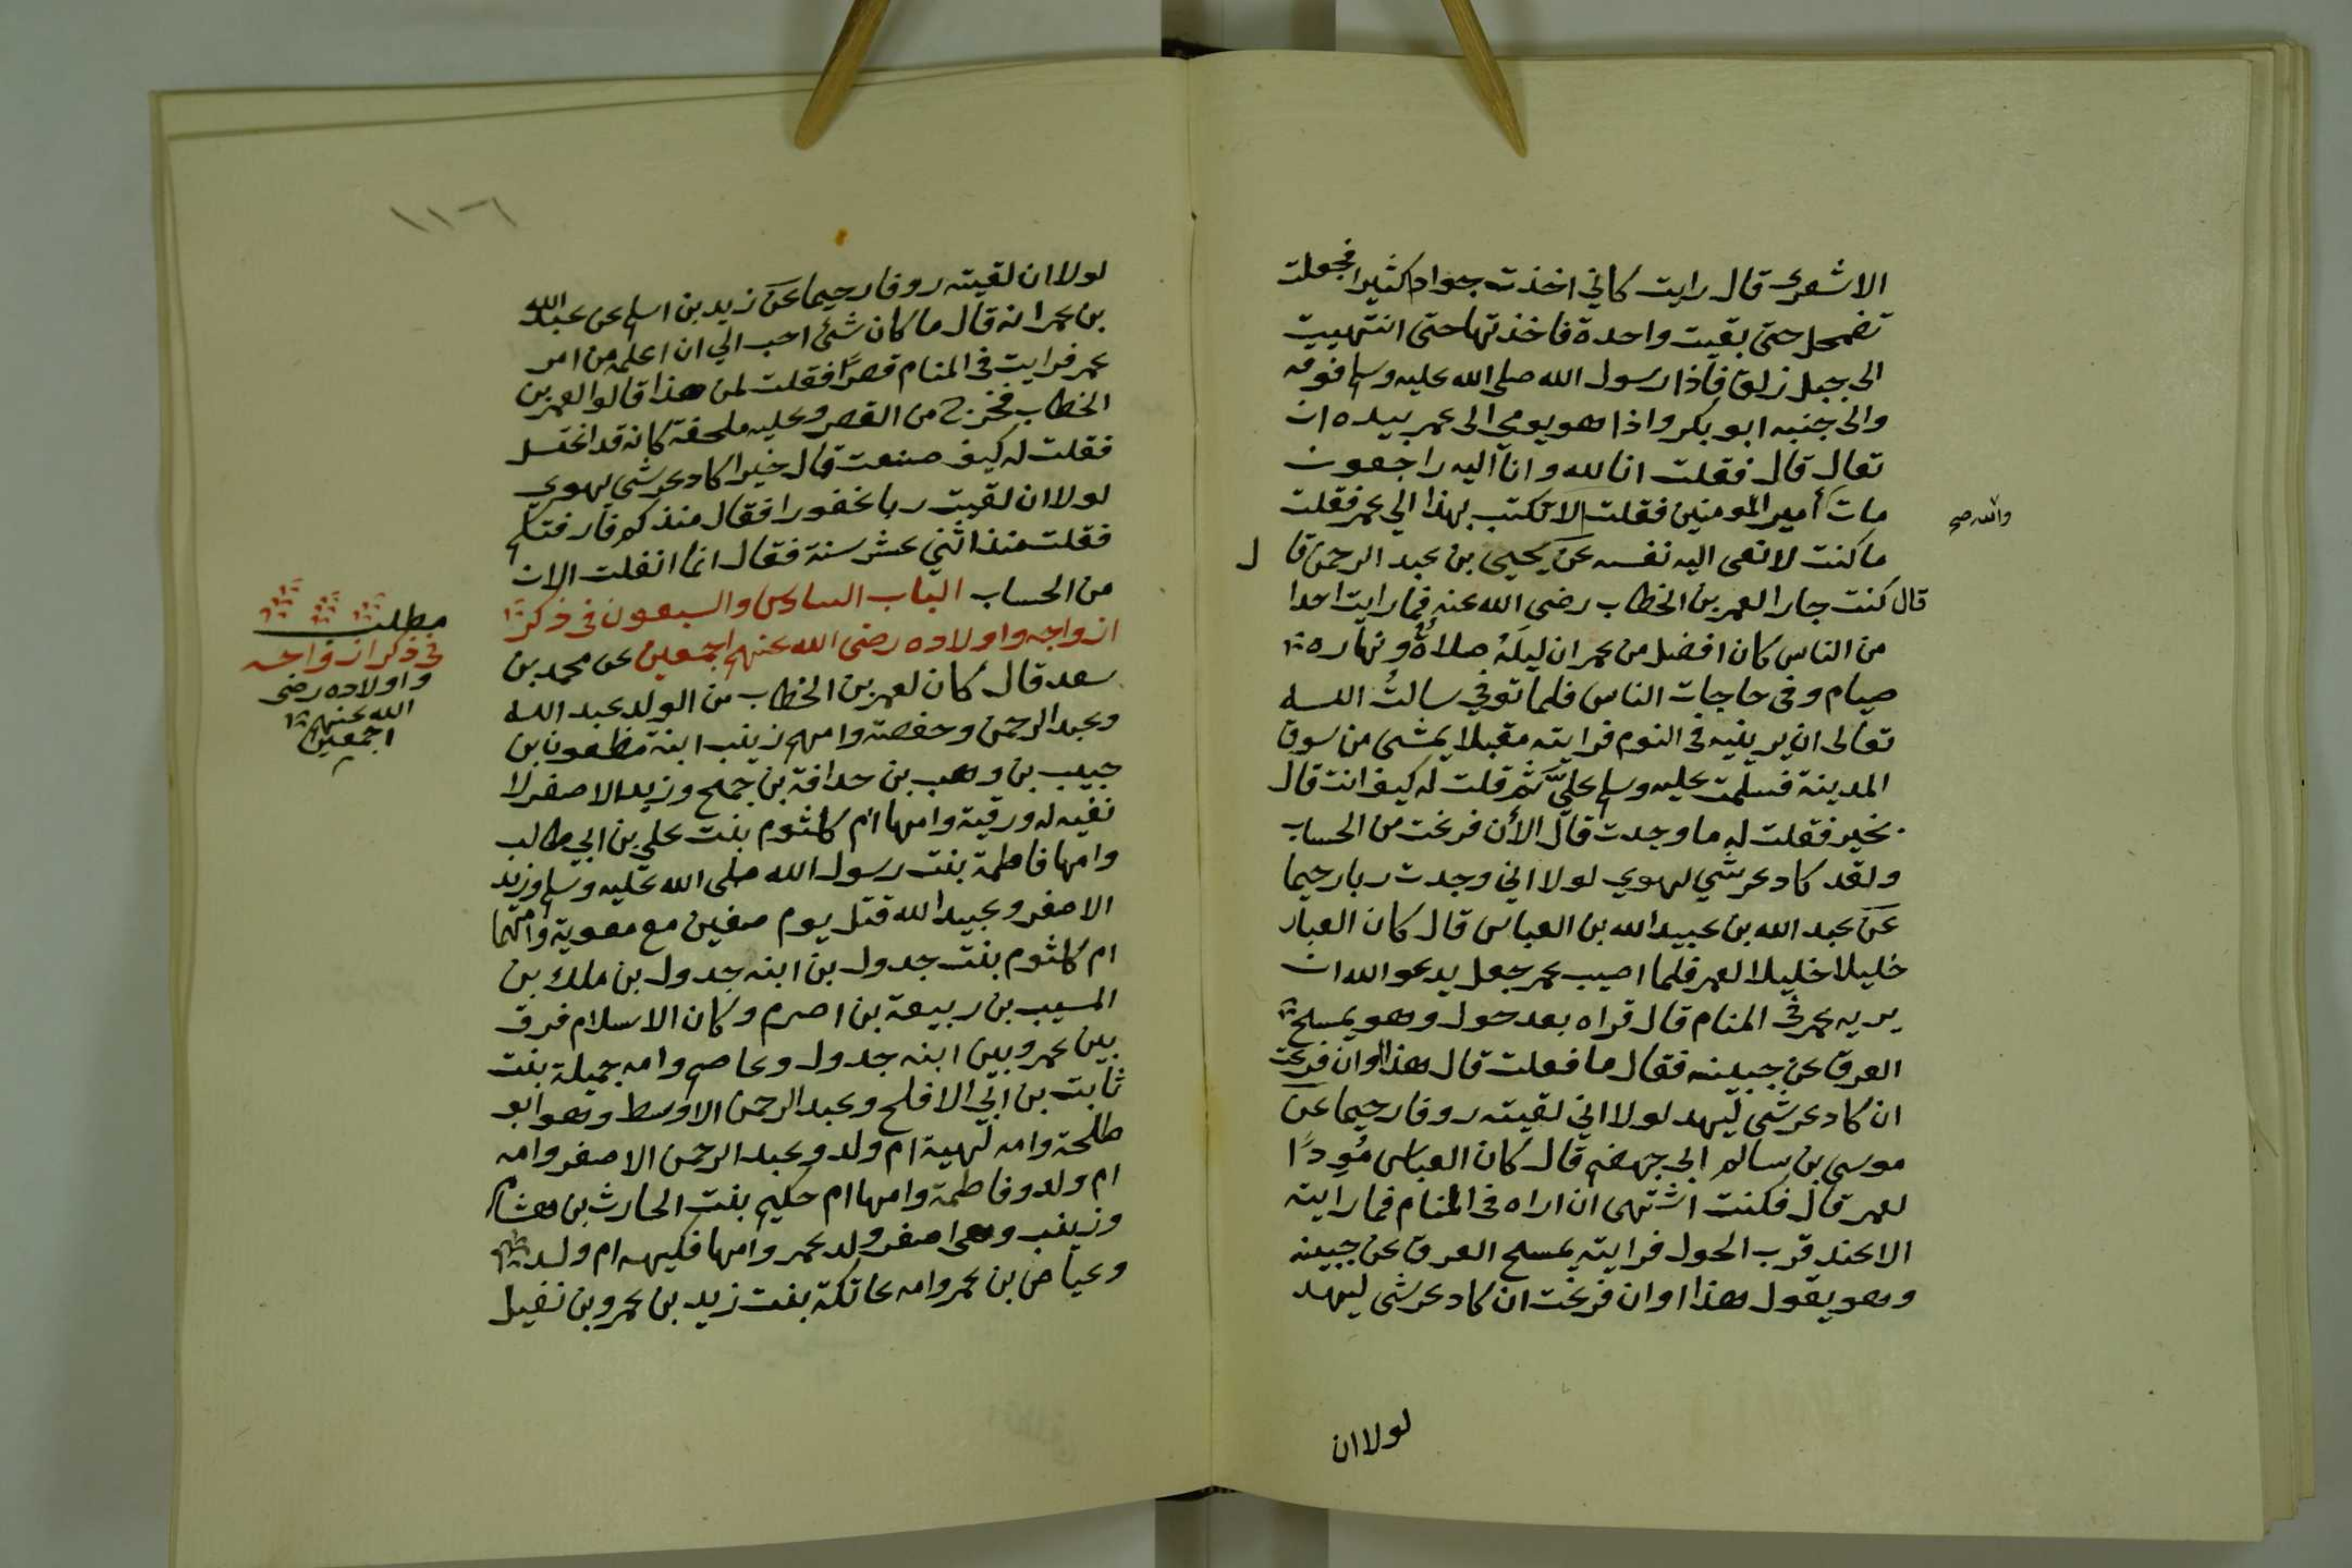 الاشعرى قال رايت كاني اخذت جوادا كثيرا فجعلت
تضمحل حتى بقيت واحدة فاخذتها حتى انتهيت
الى جبل زلق فاذا رسول الله صلى الله عليه وسلم فوقه
والى جنبه ابو بكر واذا هو يومي الى عمر بيده ان
تعال قال فقلت انا لله وانا اليه راجعون
مات أمير المومنين فقلت الا تكتب بهذا الي عمر فقلت
والله صح
ما كنت لانعى اليه نفسه عن يحيى بن عبد الرحمن قال
قال كنت جارا لعمر بن الخطاب رضي الله عنه فما رايت احدا
من الناس كان افضل من عمر ان ليلَهُ صلاةٌ ونهاره
صيام وفى حاجات الناس فلما توفي سالتُ الله
تعالى ان يرينيه فى النوم فرايته مقبلا يمشى من سوق
المدينة فسلمت عليه وسلم عليَّ ثم قلت له كيف انت قال
بخير فقلت له ما وجدت قال الأن فرغت من الحساب
ولقد كاد عرشي يهوي لولا اني وجدت ربا رحيما
عن عبد الله بن عبيد الله بن العباس قال كان العباس
خليلا خليلا لعمر فلما اصيب عمر جعل يدعو الله ان
يريه عمر فى المنام قال فراه بعد حول وهو يمسح
العرق عن جبينه فقال ما فعلت قال هذا اوان فرغت
ان كاد عرشى ليهد لولا اني لقيته روفا رحيما عن
موسى بن سالم ابي جهضم قال كان العباس مُودًا
لعمر قال فكنت اشتهى ان اراه فى المنام فما رايته
الا عند قرب الحول فرايته يمسح العرق عن جبينه
وهو يقول هذا اوان فرغت ان كاد عرشى ليهد
لولا ان
١١٦
لولا ان لقيته روفا رحيما عن زيد بن اسلم عن عبد الله
بن عمر انه قال ما كان شئ احب الي ان اعلم من امر
عمر فرايت فى المنام قصرًا فقلت لمن هذا قالوا لعمر بن
الخطاب فخرج من القصر وعليه ملحفة كانه قد اغتسل
فقلت له كيف صنعت قال خيرا كاد عرشي يهوي
لولا ان لقيت ربا غفورا فقال منذ كم فارقتكم
فقلت منذ اثني عشر سنة فقال انما انفلت الان
من الحساب الباب السادس والسبعون فى ذكر
ازواجه واولاده رضى الله عنهم اجمعين عن محمد بن
سعد قال كان لعمر بن الخطاب من الولد عبد الله
وعبد الرحمن وحفصة وامهم زينب ابنة مظعون بن
حبيب بن وهب بن حدافة بن جمح وزيد الاصغر لا
نقيه له ورقية وامها ام كلثوم بنت علي بن ابي طالب
وامها فاطمة بنت رسول الله صلى الله عليه وسلم وزيد
الاصغر وعبيد الله قتل يوم صفين مع معوية وامهما
ام كلثوم بنت جدول بن ابنه جدول بن ملك بن
المسيب بن ربيعة بن اصرم وكان الاسلام فرق
بين عمر وبين ابنه جدول وعاصم وامه جميلة بنت
ثابت بن ابي الافلح وعبد الرحمن الاوسط وهو ابو
طلحة وامه لهية ام ولد وعبد الرحمن الاصغر وامه
ام ولد وفاطمة وامها ام حكيم بنت الحارث بن هشام
وزينب وهى اصغر ولد عمر وامها فكيهه ام ولد
وعياض بن عمر وامه عاتكة بنت زيد بن عمرو بن نفيل
مطلب
فى ذكر ازواجه
واولاده رضى
الله عنهم
اجمعين